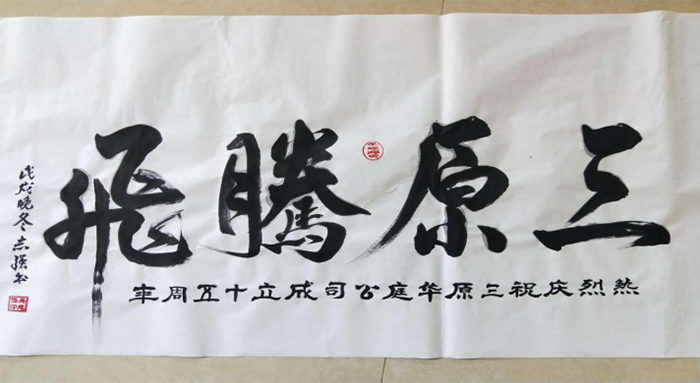 三原騰飛
热烈庆祝三原华庭公司成立十五周年
戊戌晚冬志强书